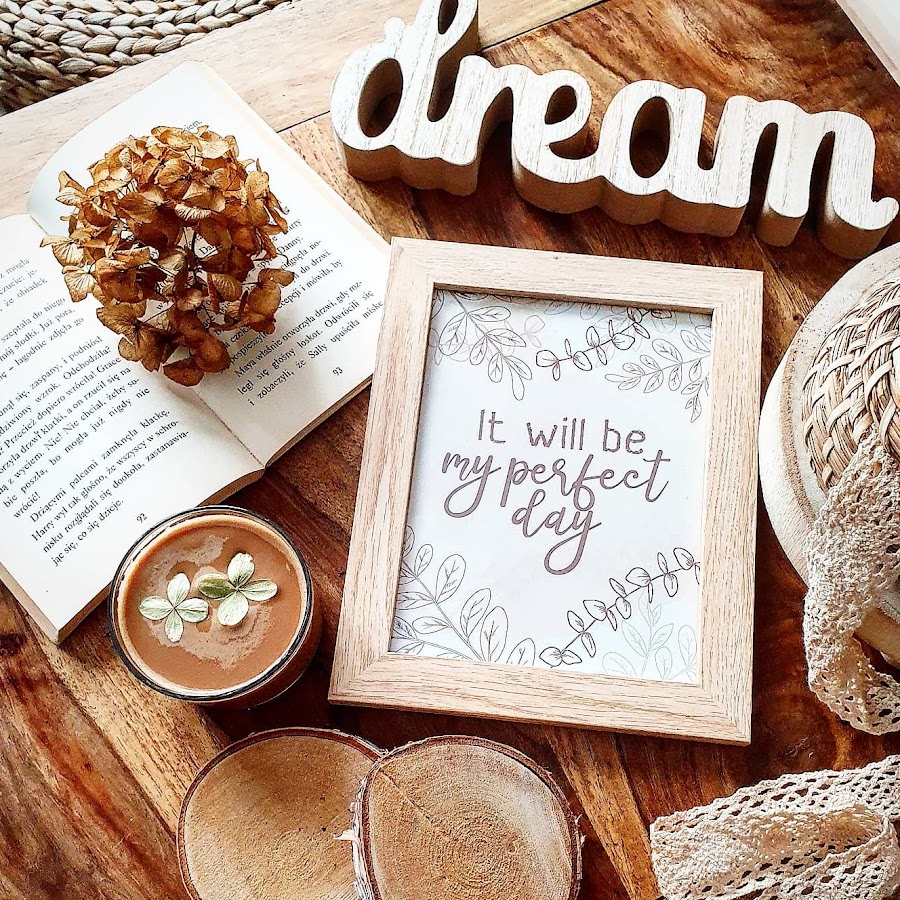 dream
It will be
my perfect
day
mogła
że obiadek
szeptała do niego
mój słodki. Już pora,
– łagodnie zdjęła go
się, zaspany, i podniósł
wzrok. Odchodziła?
Przecież dopiero wróciła! Grace
drzwi klatki, a on rzucił się na
z wyciem. Nie! Nie chciał, żeby so-
bie poszła, bo mogła już nigdy nie
wrócić!
Drżącymi palcami zamknęła klatkę.
Harry wył tak głośno, że wszyscy w schro-
nisku rozglądali się dookoła, zastanawia-
jąc się, co się dzieje.
92
Danny.
do drzwi.
i mówiła, by
Maya właśnie otworzyła drzwi, gdy roz-
legł się głośny łoskot. Odwrócili się
i zobaczyli, że Sally upuściła miskę
93